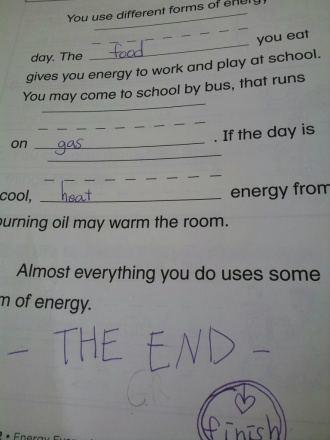 You use different forms of energy
day. The food you eat
gives you energy to work and play at school.
You may come to school by bus, that runs
on gas . If the day is
cool, heat energy from
burning oil may warm the room.
Almost everything you do uses some
m of energy.
- THE END -
finish